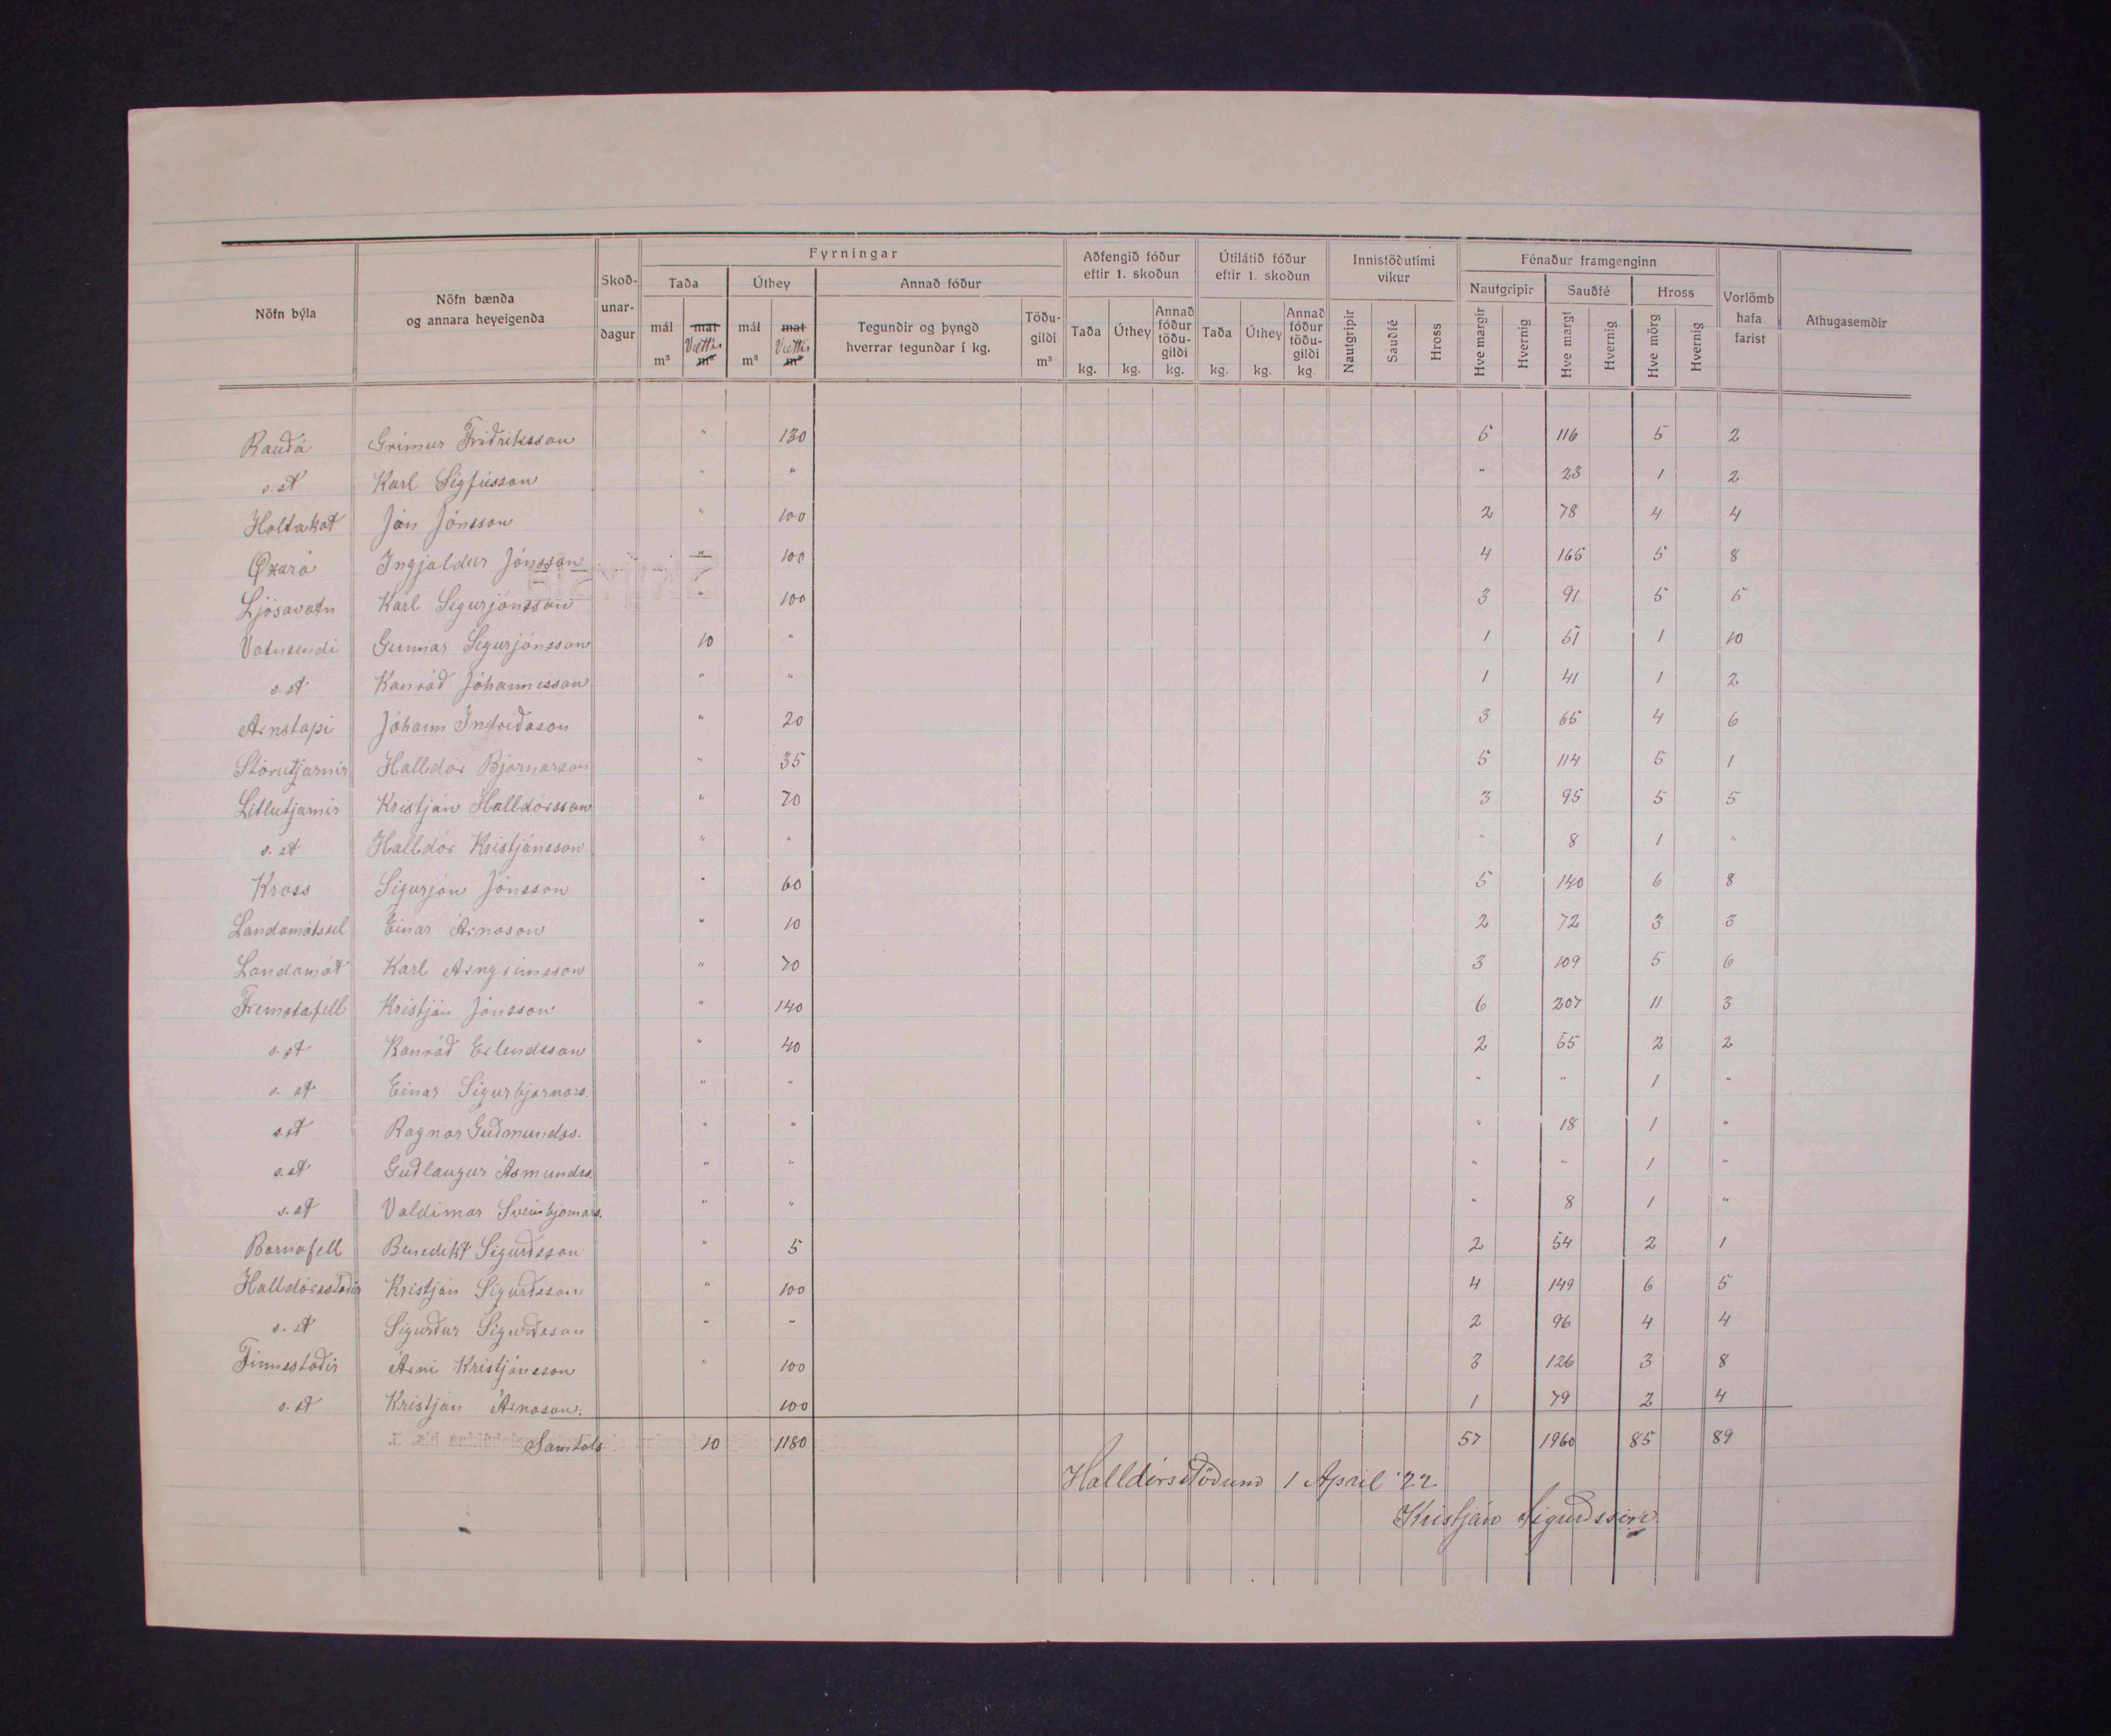 Fyrningar
Aðfengið fóður eftir 1. skoðun
Útilátið fóður eftir 1. skoðun
Innistöðutími vikur
Fénaður framgenginn
Nöfn býla
Nöfn bænda og annara heyeigenda
Skoð-unar-dagur
Taða
Úthey
Annað fóður
Nautgripir
Sauðfé
Hross
Vorlömb hafa farist
Athugasemdir
mál m³
mat m³ Vættir
mál m³
mat m³ Vættir
Tegundir og þyngd hverrar tegundar í kg.
Töðu-gildi m³
Taða kg.
Úthey kg.
Annað fóður töðu-gildi kg.
Taða kg.
Úthey kg.
Annað fóður töðu-gildi kg
Nautgripir
Sauðfé
Hross
Hve margir
Hvernig
Hve margt
Hvernig
Hve mörg
Hvernig
Rauðá Grímur Friðriksson " 130 5 116 5 2
s.st Karl Sigfússon " " " 23 1 2
Holtakot Jón Jónsson " 100 2 78 4 4
Øxará Ingjaldur Jónsson " 100 4 165 5 8
Ljósavatn Karl Sigurjónsson " 100 3 91 5 5
Vatnsendi Gunnar Sigurjónsson 10 " 1 51 1 10
s.st Konráð Jóhannesson " " 1 41 1 2
Arnstapi Jóhann Indriðason " 20 3 65 4 6
Stórutjarnir Halldór Bjarnarson " 35 5 114 5 1
Litlutjarnir Kristján Halldórsson " 70 3 95 5 5
s.st Halldór Kristjánsson " " " 8 1 "
Kross Sigurjón Jónsson " 60 5 140 6 8
Landamótssel Einar Árnason " 10 2 72 3 3
Landamót Karl Arngrímsson " 70 3 109 5 6
Fremstafell Kristján Jónsson " 140 6 207 11 3
s.st Konráð Erlendsson " 40 2 55 2 2
s.st Einar Sigurbjarnars. " " " " 1 "
s.st Ragnar Guðmundss. " " " 18 1 "
s.st Guðlaugur Ásmundss. " " " " 1 "
s.st Valdimar Sveinbjarnars. " " " 8 1 "
Barnafell Benedikt Sigurðsson " 5 2 54 2 1
Halldórsstaðir Kristján Sigurðsson " 100 4 149 6 5
s.st Sigurður Sigurðsson " " 2 96 4 4
Finnsstaðir Árni Kristjánsson " 100 3 126 3 8
s.st Kristján Árnason. 100 1 79 2 4
Samtals 10 1180 57 1960 85 89
Halldórsstöðum 1 Apríl '22
Kristján Sigurðsson